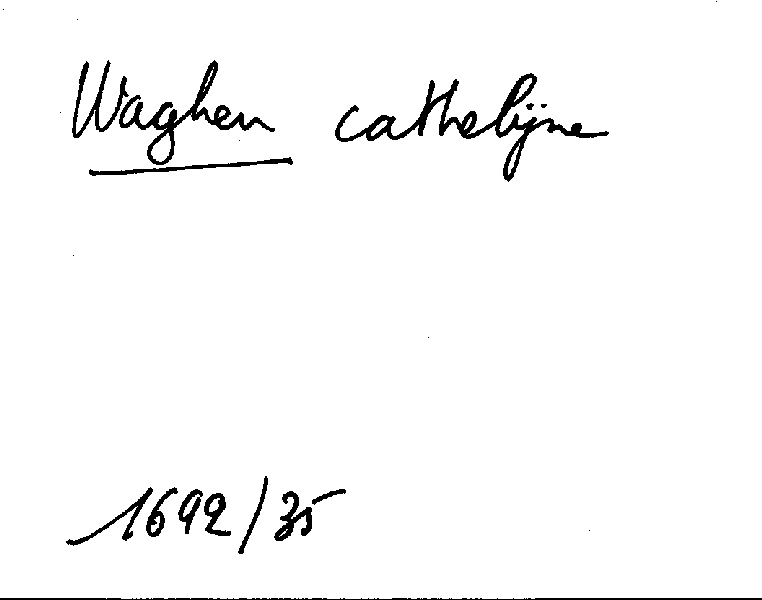 Waghen cathelijne
1692/35